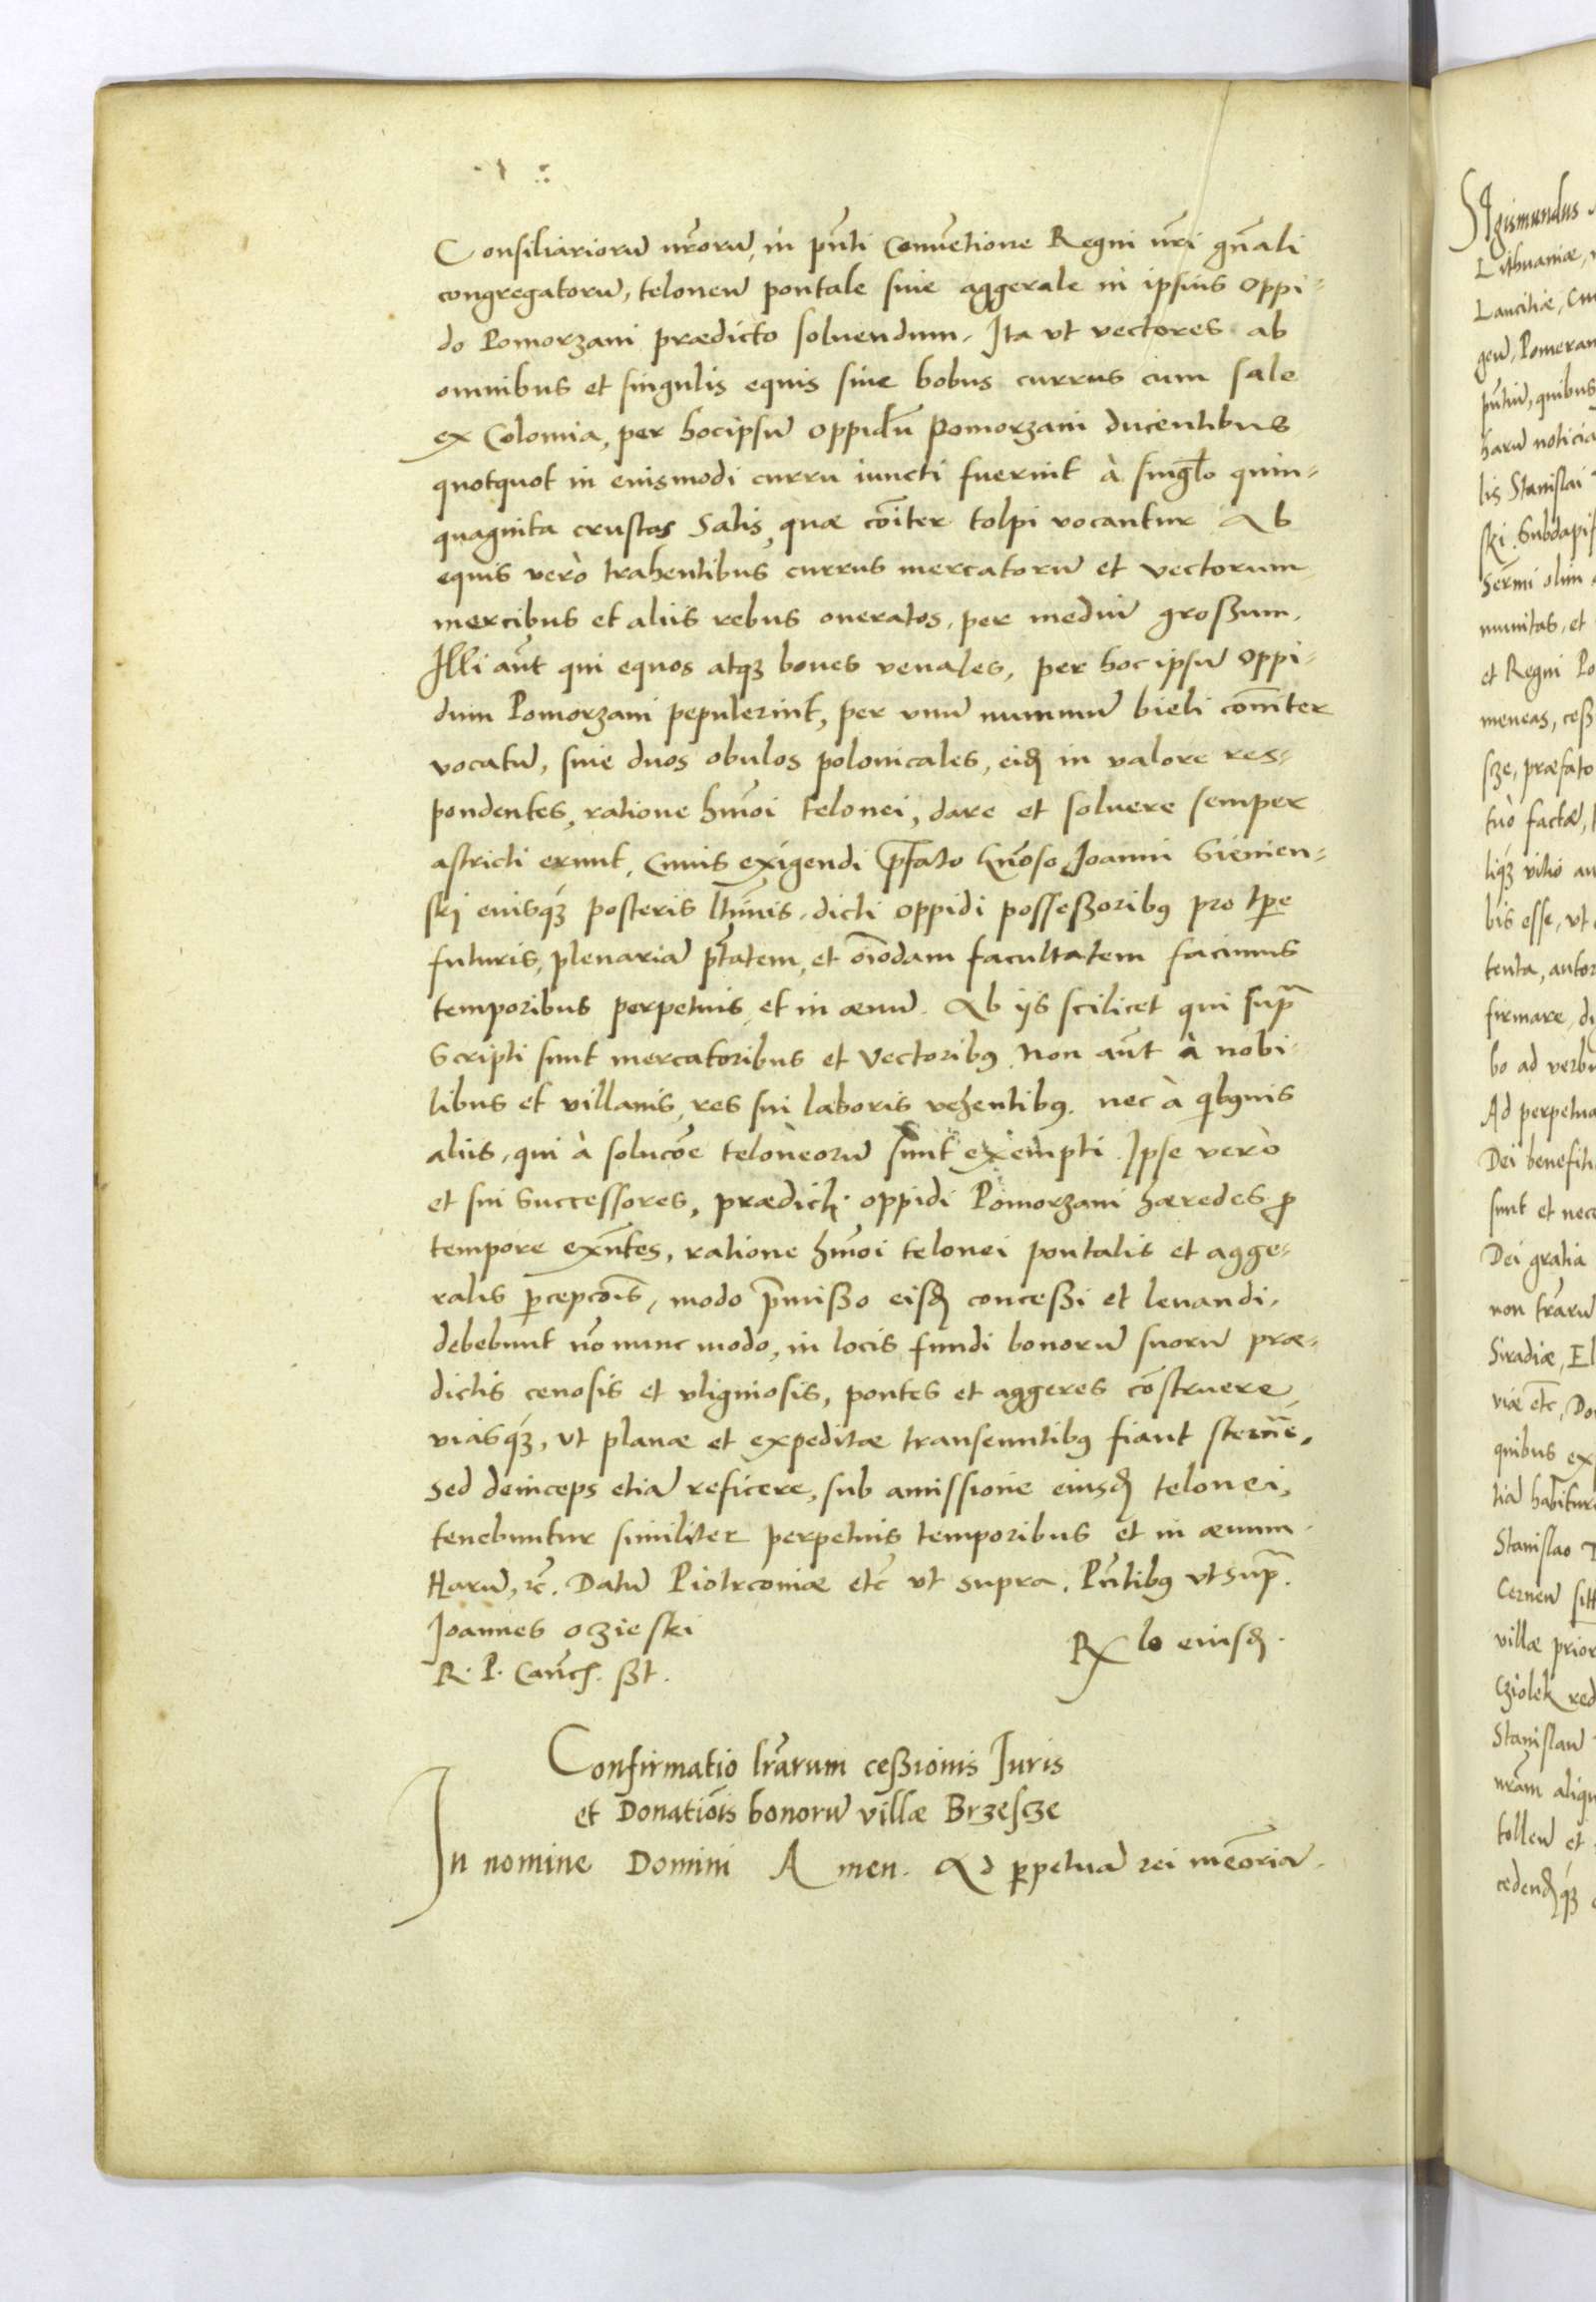 Consiliarioru͂ nr͂oru͂, in pn͂ti Conuẽtione Regni nr͂i gn͂ali
congregatoru͂, teloneu͂ pontale siue aggerale in ipsius oppi-
do Pomorzani prædicto soluendum. Ita vt vectores ab
omnibus et singulis equis siue bobus currus cum sale
ex Colomia, per hocipsu͂ oppidu͂ Pomorzani ducentibus
quotquot in eiusmodi curru iuncti fuerint à singl̃o quin-
quaginta crustas Salis, quæ cõiter tolpi vocantur Ab
equis verò trahentibus currus mercatoru͂ et vectorum
mercibus et aliis rebus oneratos, per mediu͂ großum.
Illi aũt qui equos atqꝫ boues venales, per hoc ipsu͂ oppi-
dum Pomorzani pepulerint, per vnu͂ nummu͂ bieli com̃iter
vocatu͂, siue duos obulos polonicales, eiđ in valore res-
pondentes, ratione hmo͂i telonei, dare et soluere semper
astricti erunt, Cuius exigendi p͂fato Gn͂oso Joanni Sienien-
skj eiusqꝫ posteris ltĩmis, dicti oppidi possessoribꝰ pro tpe
futuris, plenaria͂ pt͂atem, et oĩodam facultatem facimus
temporibus perpetuis et in æuu͂. Ab ijs scilicet qui sup͂
scripti sunt mercatoribus et Vectoribꝰ. Non aũt à nobi-
libus et villanis, res sui laboris vehentibꝰ. nec à qibꝰuis
aliis, qui à solucõe teloneoru͂ sunt exempti. Ipse verò
et sui successores, prædicti oppidi Pomorzani hæredes ꝓ
tempore exn͂tes, ratione hmo͂i telonei pontalis et agge-
ralis ꝑcepcõis, modo p͂mißo eisđ conceßi et leuandi,
debebunt nõ nunc modo, in locis fundi bonoru͂ suoru͂ præ-
dictis cenosis et vliginosis, pontes et aggeres cõstruere,
viasqꝫ, vt planæ et expeditæ transeuntibꝰ fiant sterñe,
sed deinceps etia͂ reficere, sub amissione eiusđ telonei,
tenebuntur similiter perpetuis temporibus et in æuum.
Haru͂, ⁊c̃. Datu͂ Piotrconiæ etc̃ vt supra. Pn͂tibꝰ vt sup͂.
Joannes oczieski
R. P. Canc̃. ßt.
Rx lo eiusđ.
Confirmatio lr͂arum ceßionis Iuris
et Donatiõis bonoru͂ villæ Brzescze
In nomine Domini Amen. Ad ꝑpetua͂ rei memõria͂.
Sigismundus
Lithuaniæ,
Lanciciæ, Cu
geu͂, Pomeran
pn͂tiu͂, quibus
haru͂ noticia
lis Stanislai
ski. Subdapif
Serm̃i olim
munitas, et
et Regni Po
meneas, ceß
scze, præfato
tuò factæ,
liqꝫ vitio au
bis esse, vt
tenta, autor
firmare, di
bo ad verbu
Ad perpetua
Dei benefiti
sunt et nece
Dei gratia
non tr͂aru͂
Siradiæ, El
viæ etc̃, Do
quibus ex
tia͂ habitur
Stanislao
Cerneu͂ sitt
villæ prior
Cziolek red
Stanislau͂
nr͂am aliqu
tolleu͂ et
cedenđqꝫ